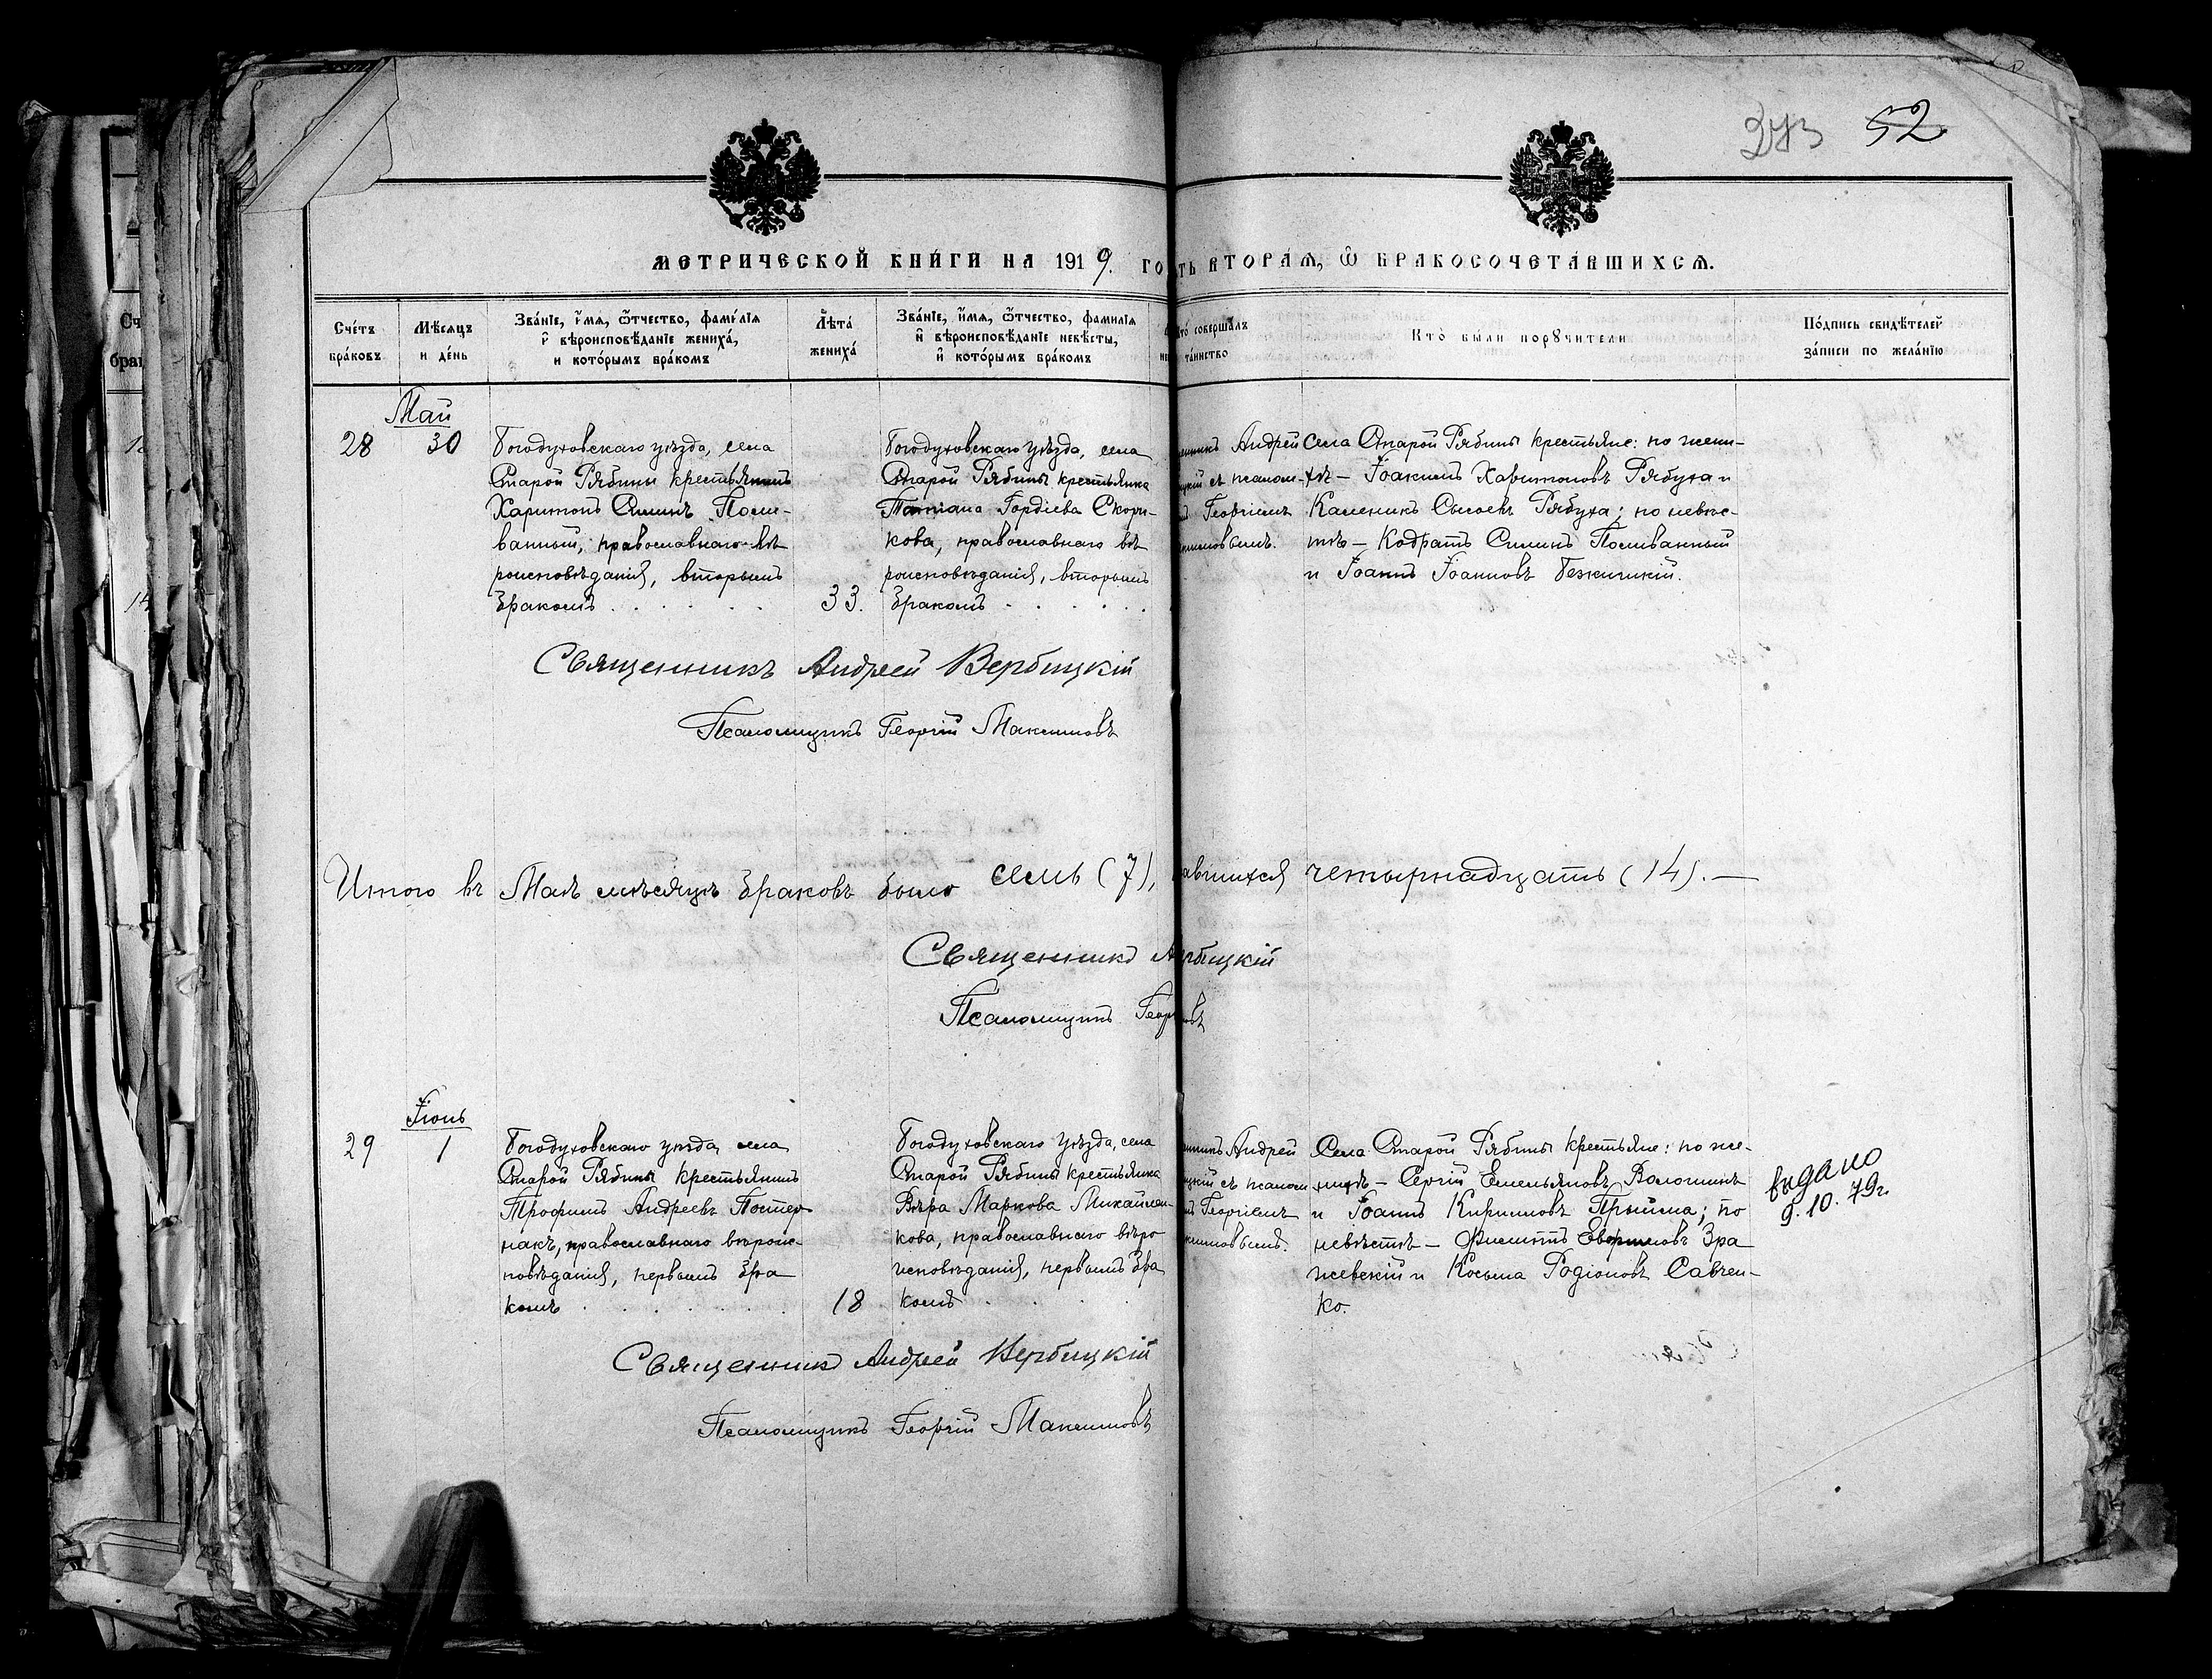 373 52
МЕТРИЧЕСКОЙ КНИГИ НА 1919. ГО
ТЬ ВТОРАЯ, Ѡ БРАКОСОЧЕТАВШИХСЯ.
Счетъ браковъ
Мѣсяцъ и день
Званіе, имя, ѿтчество, фамилія и вѣроисповѣданіе жениха, и которымъ бракомъ
Лѣта жениха
Званіе, имя, ѿтчество, фамилия и вѣроисповѣданіе невѣсты, и которымъ бракомъ
то совершалъ таинство
Кто были порꙋчители
Подпись свидѣтелей записи по желанію
Май
28 30
Богодуховскаго уѣзда, села
Старой Рябины крестьянинъ
Харитонъ Силинъ Поли-
ванный, православнаго вѣ
роисповѣданія, вторымъ
бракомъ
33.
Богодуховскаго уѣзда, села
Старой Рябины крестьянка
Татіана Гордіева Скори-
кова, православнаго вѣ
роисповѣданія, вторымъ
бракомъ
енникъ Андрей
цкій съ псалом-
ъ Георгіемъ
симовымъ.
Села Старой Рябины крестьяне: по жени-
хѣ – Іоакимъ Харитоновъ Рябуха и
Каленикъ Сысоевъ Рябуха; по невѣс-
тѣ – Кодратъ Силинъ Поливанный
и Іоаннъ Іоанновъ Бежицкій.
Священникъ Андрей Вербицкій
Псаломщикъ Георгій Максимовъ
Итого въ Маѣ мѣсяцѣ браковъ было семь (7),
авшихся четырнадцать (14). —
Священникъ А
рбицкій
Псаломщикъ Геор
овъ
Іюнь
29 1
Богодуховскаго уѣзда, села
Старой Рябины крестьянинъ
Трофимъ Андреевъ Постер
накъ, православнаго вѣроис-
повѣданія, первымъ бра
комъ
18
Богодуховскаго уѣзда, села
Старой Рябины крестьянка
Вѣра Маркова Михайлен-
кова, православнаго вѣро
исповѣданія, первымъ бра
комъ
енникъ Андрей
цкій съ псалом
ъ Георгіемъ
симовымъ.
Села Старой Рябины крестьяне: по же-
нихѣ – Сергій Емельяновъ Волошинъ
и Іоаннъ Кирилловъ Прыйма; по
невѣстѣ – Филиппъ Зра
жевскій и Косьма Родіоновъ Савчен-
ко.
видано
9.10.79г.
Священникъ Андрей Вербицкій
Псаломщикъ Георгій Максимовъ